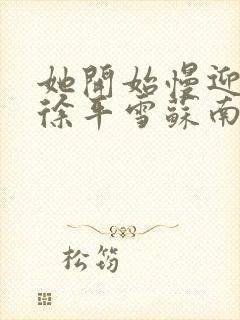 她開始慢迎
徐平雪蘇南
松筠